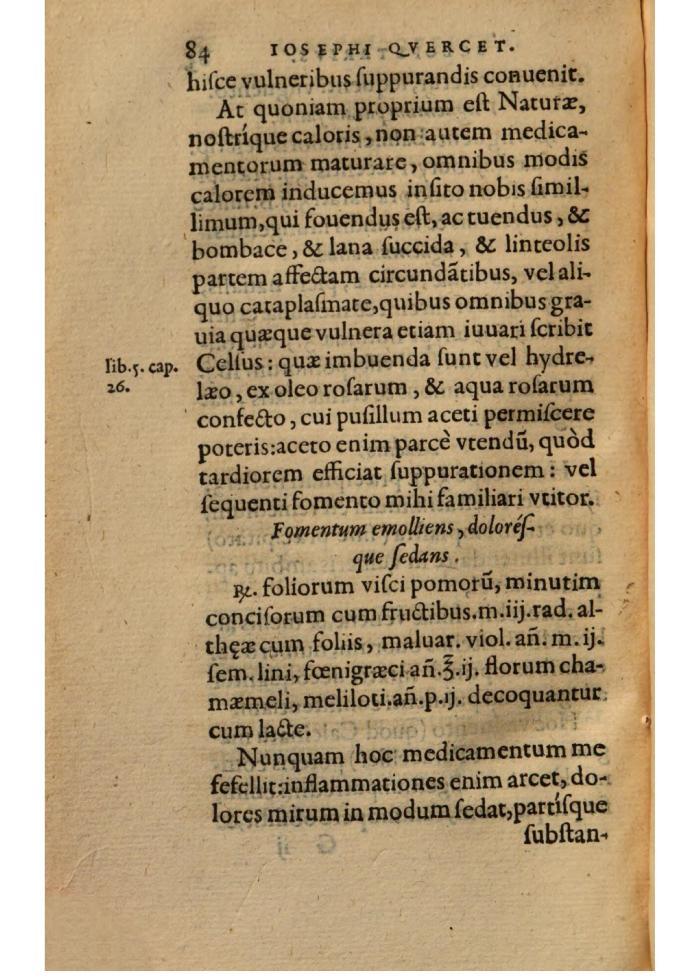 84 IOSEPHI QVERCET.
hiſce vulneribus ſuppurandis conuenit.
At quoniam proprium eſt Naturæ,
noſtríque caloris, non autem medica-
mentorum maturare, omnibus modis
calorem inducemus inſito nobis ſimil-
limum, qui fouendus eſt, ac tuendus, &
bombace, & lana ſuccida, & linteolis
partem affectam circundãtibus, vel ali-
quo cataplaſmate, quibus omnibus gra-
uia quæque vulnera etiam iuuari ſcribit
lib. 5. cap.
26.
Celſus: quæ imbuenda ſunt vel hydre-
læo, ex oleo roſarum, & aqua roſarum
confecto, cui puſillum aceti permiſcere
poteris: aceto enim parcè vtendũ, quòd
tardiorem efficiat ſuppurationem: vel
ſequenti fomento mihi familiari vtitor.
Fomentum emolliens, doloréſ-
que ſedans.
℞. foliorum viſci pomorũ, minutim
conciſorum cum fructibus. m. iij. rad. al-
thęæ cum foliis, maluar. viol. añ. m. ij.
ſem. lini, fœnigræci añ. ʒ̃. ij. florum cha-
mæmeli, meliloti. añ. p. ij. decoquantur
cum lacte.
Nunquam hoc medicamentum me
fefellit: inflammationes enim arcet, do-
lores mirum in modum ſedat, partíſque
ſubſtan-